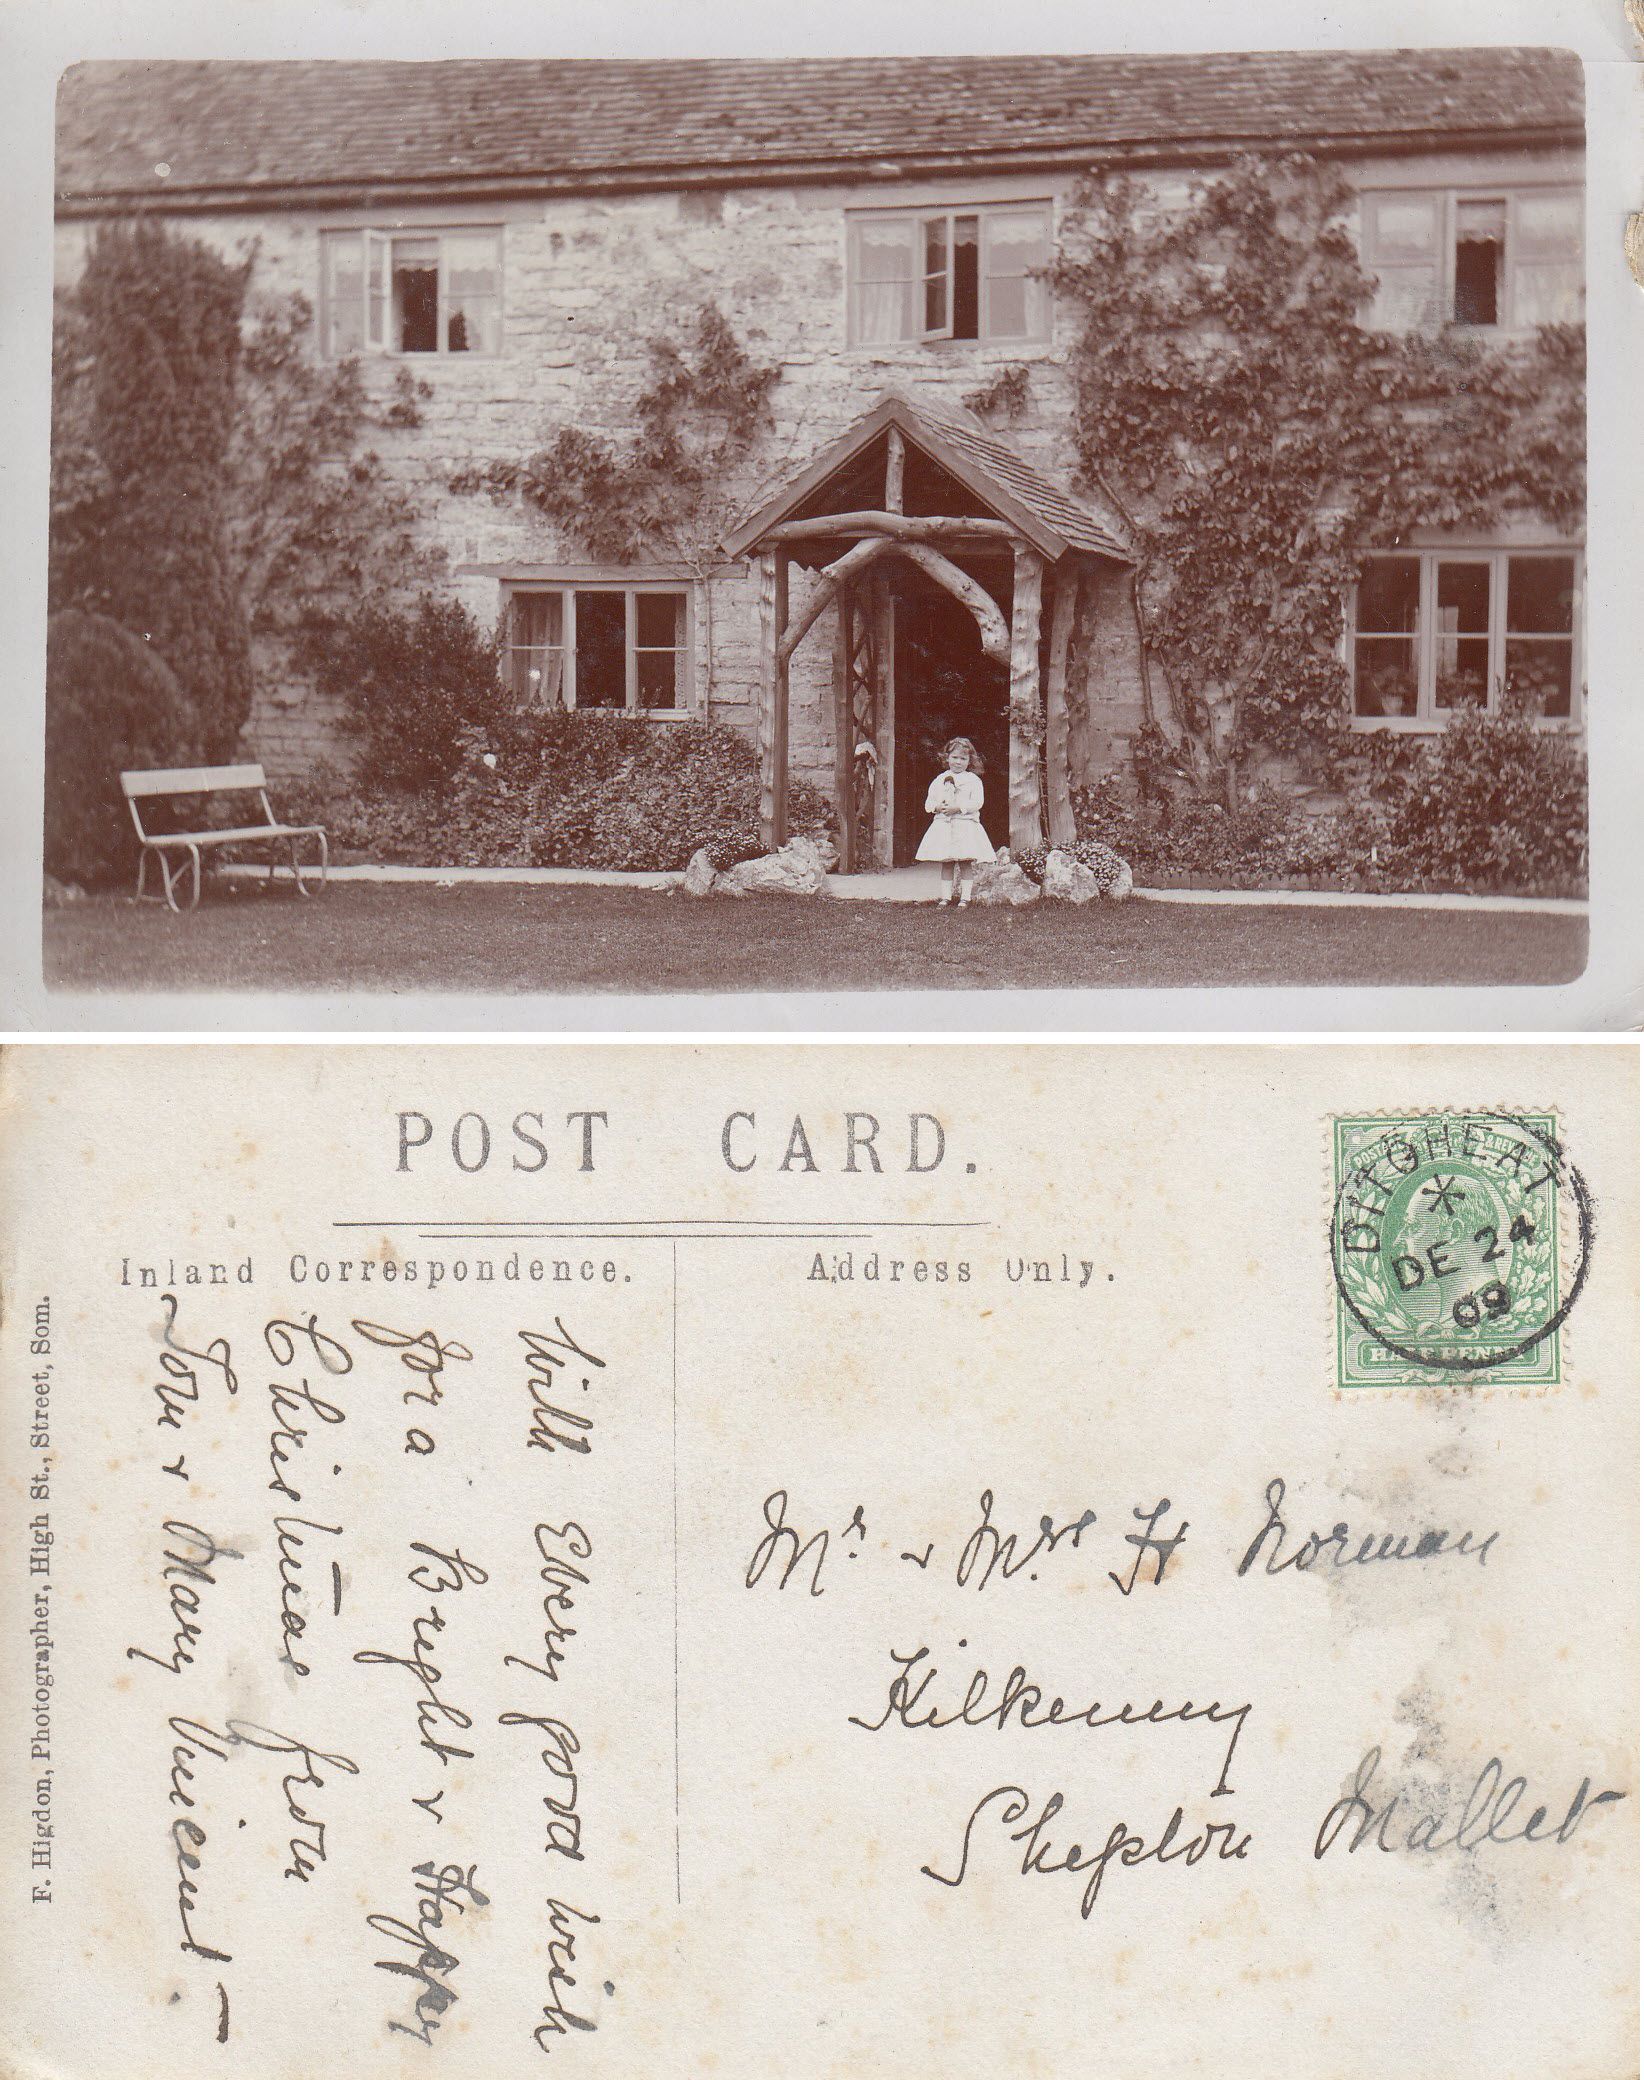 POST CARD.
Inland Correspondence.
Address Only.
DITCHEAT
DE 24
09
HALFPENNY
With Every good wish
for a Bright & Happy
Christmas from
Tom & Mary Vincent —
Mr. & Mrs H Norman
Kilkenny
Shepton Mallet
F. Higdon, Photographer, High St., Street, Som.